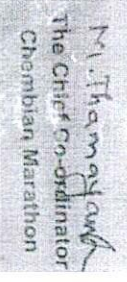 M. Thamayanth
The Chief Co-ordinator
Chembian Marathon